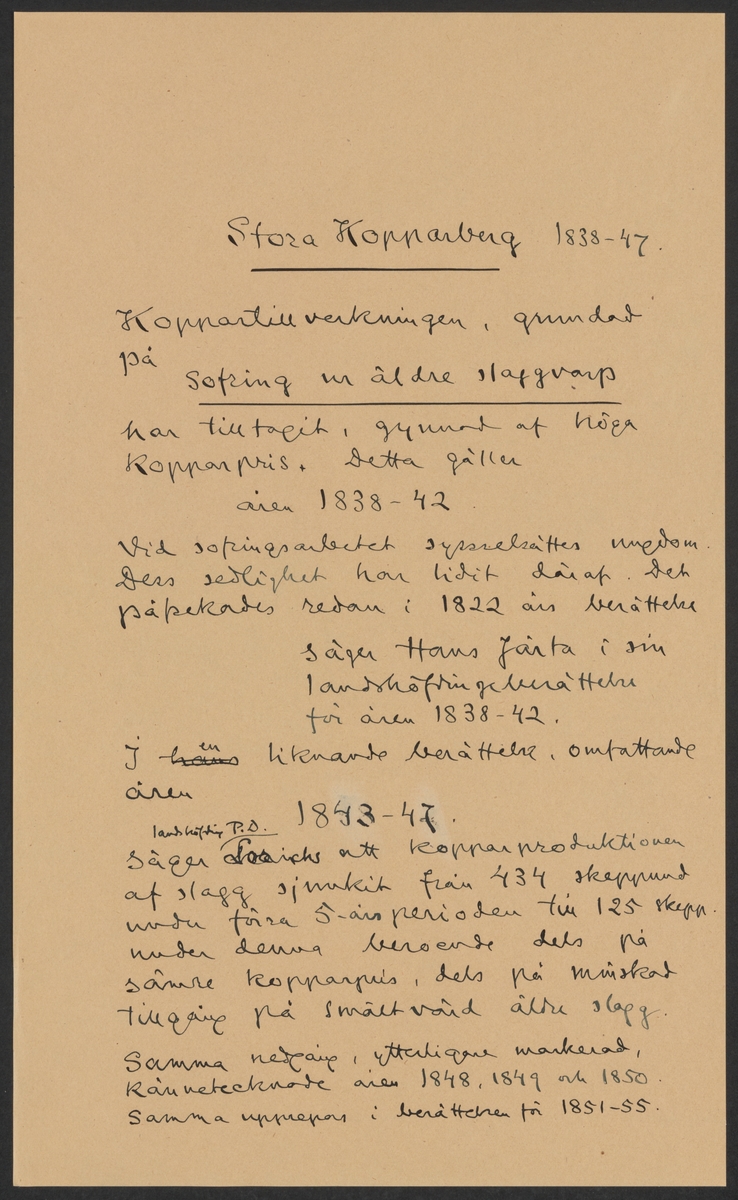 Stora Kopparberg 1838-47.
Koppartillverkningen, grundad
på
sofring ur äldre slaggvarp
har tilltagit, gynnad af höga
kopparpris. Detta gäller
åren 1838-42
Vid sofringsarbetet sysselsättes ungdom.
Dess sedlighet har lidit däraf. Det
påpekades redan i 1822 års berättelse
säger Hans Järta i sin
landshöfdingeberättelse
för åren 1838-42.
I hans en liknande berättelse, omfattande
åren
1843-47.
landshöfding P.D.
säger att kopparproduktionen
af slagg sjunkit från 434 skeppund
under förra 5-årsperioden till 125 skepp.
under denna beroende dels på
sämre kopparpris, dels på minskad
tillgång på smältvärd äldre slagg.
Samma nedgång, ytterligare markerad,
kännetecknade åren 1848, 1849 och 1850.
Samma upprepas i berättelsen för 1851-55.